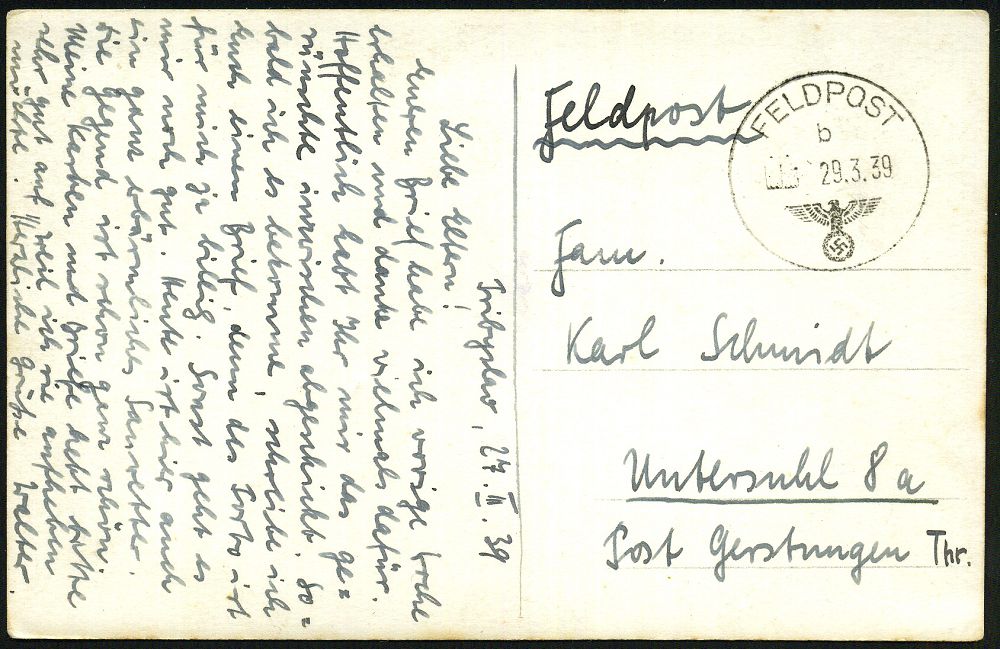 Pribyslav, 27. III. 39
Liebe Eltern!
Euren Brief habe ich vorige Woche
erhalten und danke vielmals dafür.
Hoffentlich habt Ihr mir das ge=
wünschte inzwischen abgeschickt. So=
bald ich es bekomme, schreibe ich
Euch einen Brief, denn das Porto ist
für mich ja billig. Sonst geht es
mir noch gut. Heute ist hier auch
ein ganz erbärmliches Sauwetter.
Die Gegend ist schon ganz schön.
Meine Karten und Briefe hebt bitte
sehr gut auf, weil ich sie aufheben
möchte. Herzliche Grüße Walter
Feldpost
FELDPOST
b
29.3.39
Fam.
Karl Schmidt
Untersuhl 8a
Post Gerstungen Thr.